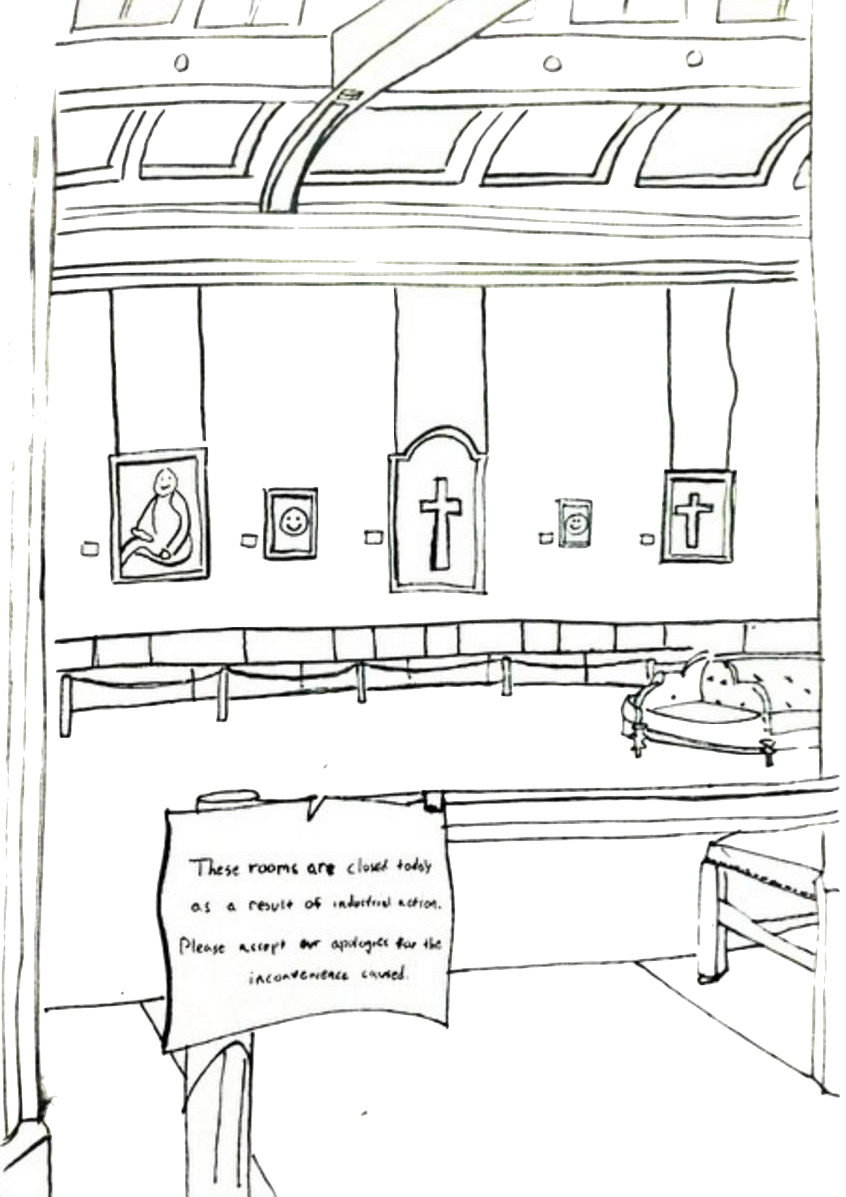 These rooms are closed today
as a result of industrial action.
Please accept our apologies for the
inconvenience caused.